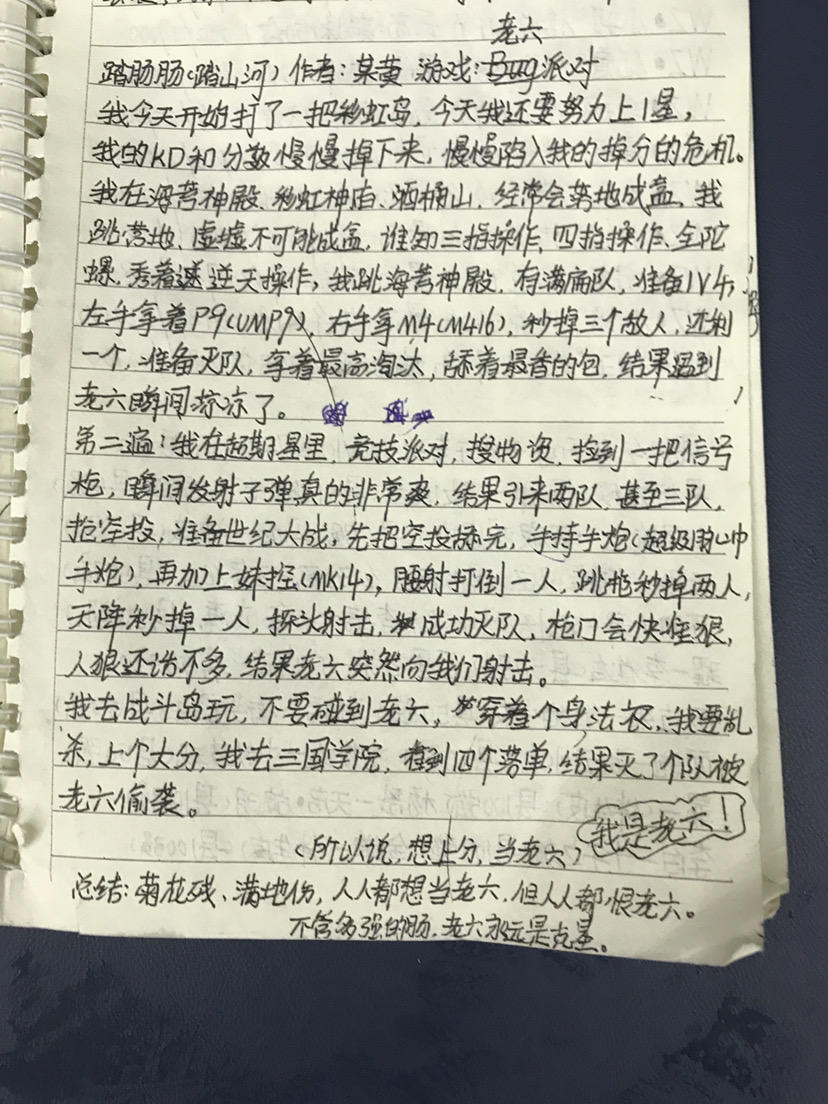 老六
踏肠肠(踏山河) 作者:某黄 游戏:Bug派对
我今天开始打了一把彩虹岛,今天我还要努力上1星,
我的KD和分数慢慢掉下来,慢慢陷入我的掉分的危机。
我在海莺神殿、彩虹神庙、酒桶山,经常会落地成盒,我
跳营地、虚墟不可能成盒,谁知三指操作、四指操作、全陀
螺,秀着谜逆天操作,我跳海莺神殿,有满编队,准备1V4,
左手拿着P9(UMP9),右手拿M4(M416),秒掉三个敌人,还剩
一个,准备灭队,拿着最高淘汰,舔着最香的包,结果遇到
老六瞬间凉凉了。
第二遍:我在超期星里,竞技派对,搜物资,捡到一把信号
枪,瞬间发射子弹真的非常爽,结果引来两队,甚至三队,
抢空投,准备世纪大战,先把空投舔完,手持手炮(超级
手炮),再加上妹控(MK14),腰射打倒一人,跳枪秒掉两人,
天降秒掉一人,探头射击,成功灭队,枪门会快准狠,
人狠还话不多,结果老六突然向我们射击。
我去战斗岛玩,不要碰到老六,穿着个身法衣,我要乱
杀,上个大分,我去三国学院,看到四个落单,结果灭了个队被
老六偷袭。
我是老六!
(所以说,想上分,当老六)
总结:菊花残、满地伤,人人都想当老六,但人人都恨老六。
不管多强的肠,老六永远是克星。